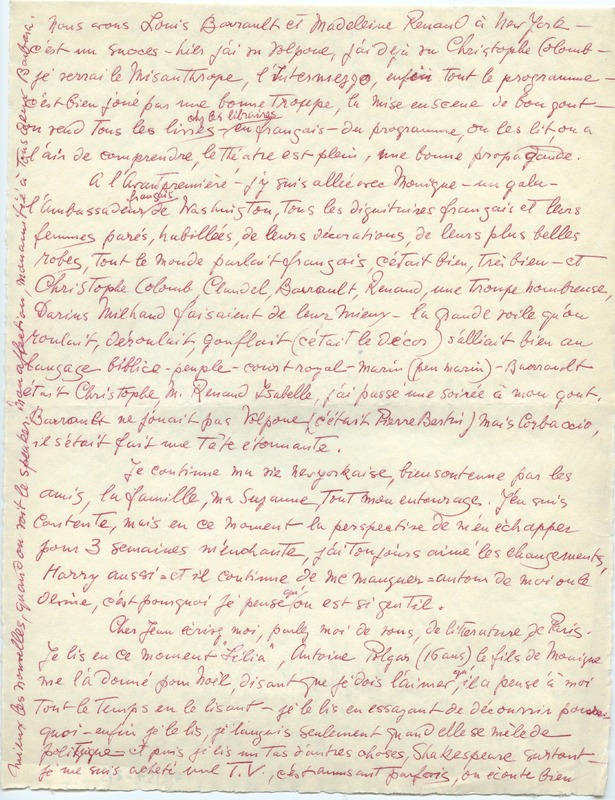 Nous avons Louis Barrault et Madeleine Renaud à New York –
c'est un succès – hier j'ai vu Volpone, j'ai déjà vu Christophe Colomb –
je verrai le Misanthrope, l'Intermezzo, enfin tout le programme –
c'est bien joué par une bonne troupe, la mise en scène de bon goût –
on vend tous les livres – chez les libraires en français – du programme, on les lit on a
l'air de comprendre, le théatre est plein, une bonne propagande.
A l'Avant première – j'y suis allée avec Monique – un gala –
l'Ambassadeur français de Washington, tous les dignitaires français et leurs
femmes parés, habillées, de leurs décorations, de leurs plus belles
robes, tout le monde parlait français, c'était bien, très bien – et
Christophe Colomb Claudel, Barrault, Renaud, une troupe nombreuse
Darius Milhaud faisaient de leur mieux – la grande voile qu'on
roulait, déroulait, gonflait (c'était le décor) s'alliait bien au
langage biblico – peuple – court royal – marin (peu marin) – Barrault
était Christophe M. Renaud Isabelle, j'ai passé une soirée à mon gout.
Barrault ne jouait pas Volpone (c'était Pierre Bertin) mais Corbaccio,
il s'était fait une tête étonnante.
Je continue ma vie newyorkaise, bien soutenue par les
amis, la famille, ma Suzanne, tout mon entourage. J'en suis
contente, mais en ce moment la perspective de m'en échapper
pour 3 semaines m'enchante, j'ai toujours aimé les changements,
Harry aussi = et il continue de me manquer = autour de moi on le
devine, c'est pourquoi je pense qu'on est si gentil.
Cher Jean écrivez moi, parlez moi de vous, de literature de Paris.
Je lis en ce moment "Lélia", Antoine Polgar (16 ans) le fils de Monique
me l'a donné pour Noël, disant que je dois l'aimer, qu'il a pensé à moi
tout le temps en le lisant – je le lis en essayant de découvrir pour-
quoi – enfin je le lis, je languis seulement quand elle se mèle de
politique – et puis je lis un tas d'autres choses, Shakespeare surtout –
je me suis acheté une T.V., c'est amusant parfois, on écoute bien
mieux les nouvelles, quand on voit le speaker. Mon affection mon amitié à vous deux Barbara.